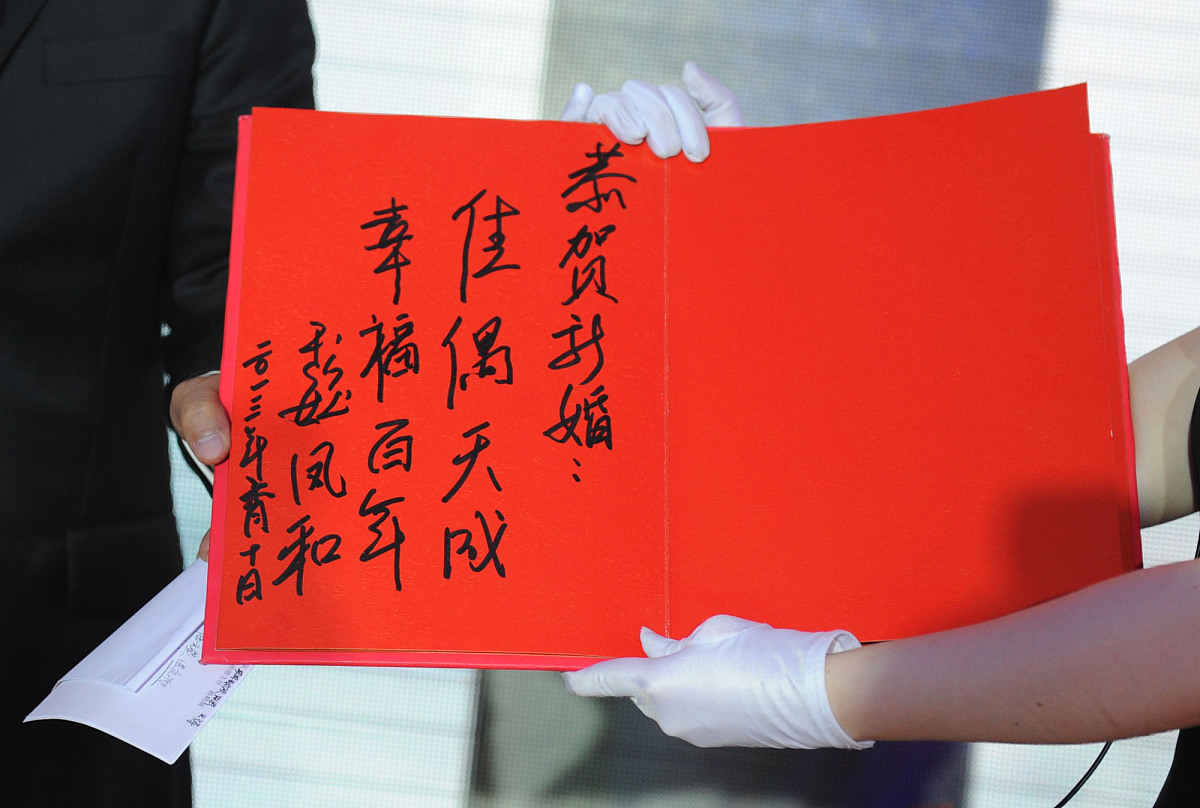 恭贺新婚:
佳偶天成
幸福百年
凤和
二〇一三年 十日